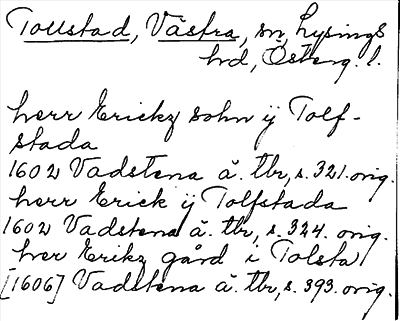 Tollstad, Västra, sn, Lysings
hd, Österg. l.
herr Erickz sohn ÿ Tolf-
stada
1602 Vadstena ä. tbr, s. 321. orig.
herr Erick ÿ Tolfstada
1602 Vadstena ä. tbr, s. 324. orig.
her Erikz gård i Tolsta
[1606] Vadstena ä. tbr, s. 393. orig.